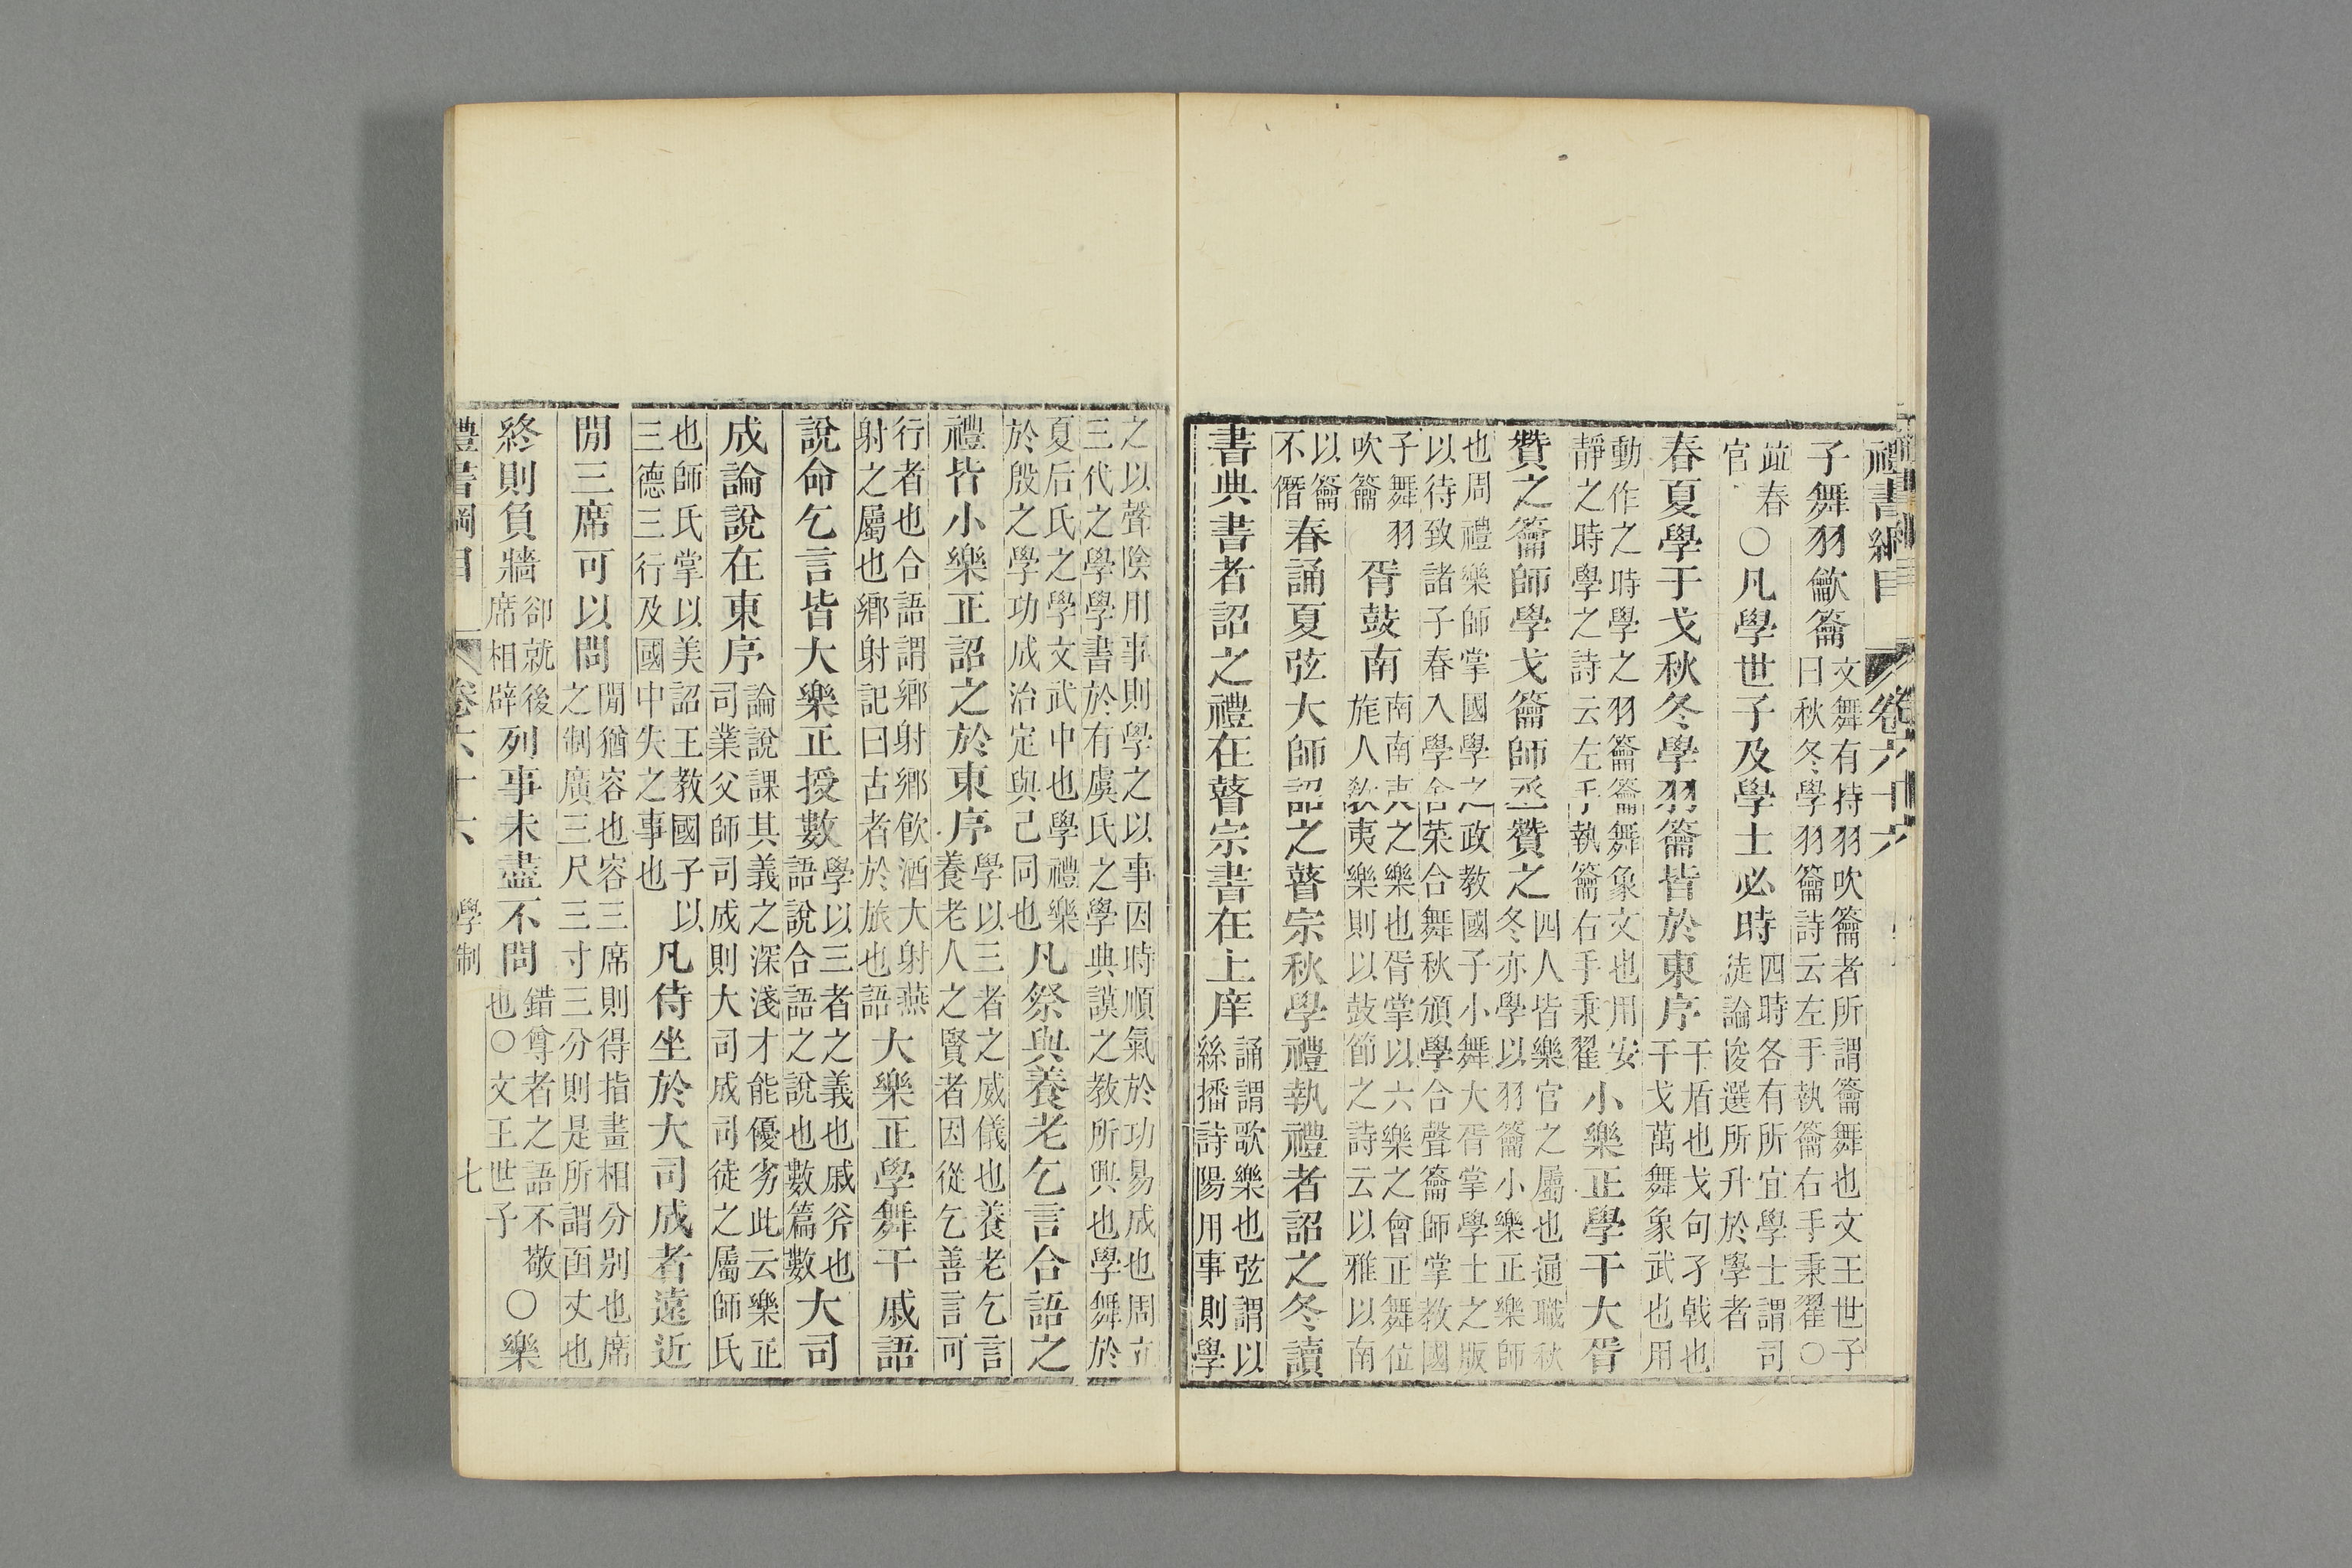 禮書綱目 卷六十六
子舞羽龡籥文舞有持羽吹籥者所謂籥舞也文王世子
曰秋冬學羽籥詩云左手執籥右手秉翟○
竝春
官○凡學世子及學士必時四時各有所宜學士謂司
徒論俊選所升於學者
春夏學干戈秋冬學羽籥皆於東序干盾也戈句孑戟也
干戈萬舞象武也用
動作之時學之羽籥籥舞象文也用安
靜之時學之詩云左手執籥右手秉翟小樂正學干大胥
贊之籥師學戈籥師丞贊之四人皆樂官之屬也通職秋
冬亦學以羽籥小樂正樂師
也周禮樂師掌國學之政教國子小舞大胥掌學士之版
以待致諸子春入學舍菜合舞秋頒學合聲籥師掌教國
子舞羽
吹籥胥鼓南南南夷之樂也胥掌以六樂之會正舞位
旄人教夷樂則以鼓節之詩云以雅以南
以籥
不僭春誦夏弦大師詔之瞽宗秋學禮執禮者詔之冬讀
書典書者詔之禮在瞽宗書在上庠誦謂歌樂也弦謂以
絲播詩陽用事則學
之以聲陰用事則學之以事因時順氣於功易成也周立
三代之學學書於有虞氏之學典謨之教所興也學舞於
夏后氏之學文武中也學禮樂
於殷之學功成治定與己同也凡祭與養老乞言合語之
禮皆小樂正詔之於東序學以三者之威儀也養老乞言
養老人之賢者因從乞善言可
行者也合語謂鄉射鄉飲酒大射燕
射之屬也鄉射記曰古者於旅也語大樂正學舞干戚語
說命乞言皆大樂正授數學以三者之義也戚斧也
語說合語之說也數篇數大司
成論說在東序論說課其義之深淺才能優劣此云樂正
司業父師司成則大司成司徒之屬師氏
也師氏掌以美詔王教國子以
三德三行及國中失之事也凡侍坐於大司成者遠近
閒三席可以問閒猶容也容三席則得指畫相分别也席
之制廣三尺三寸三分則是所謂函丈也
終則負牆卻就後
席相辟列事未盡不問錯尊者之語不敬
也○文王世子○樂
禮書綱目 卷六十六 學制 七